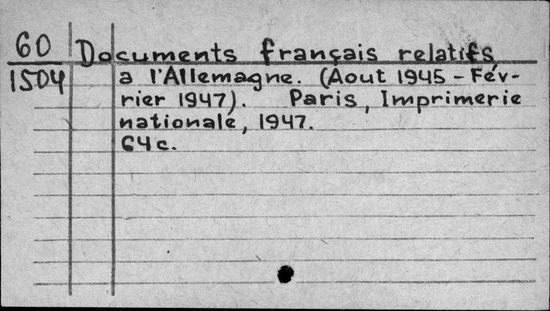 60 Documents français relatifs
1504 a l'Allemagne. (Aout 1945 - Fév-
rier 1947). Paris, Imprimerie
nationale, 1947.
64c.